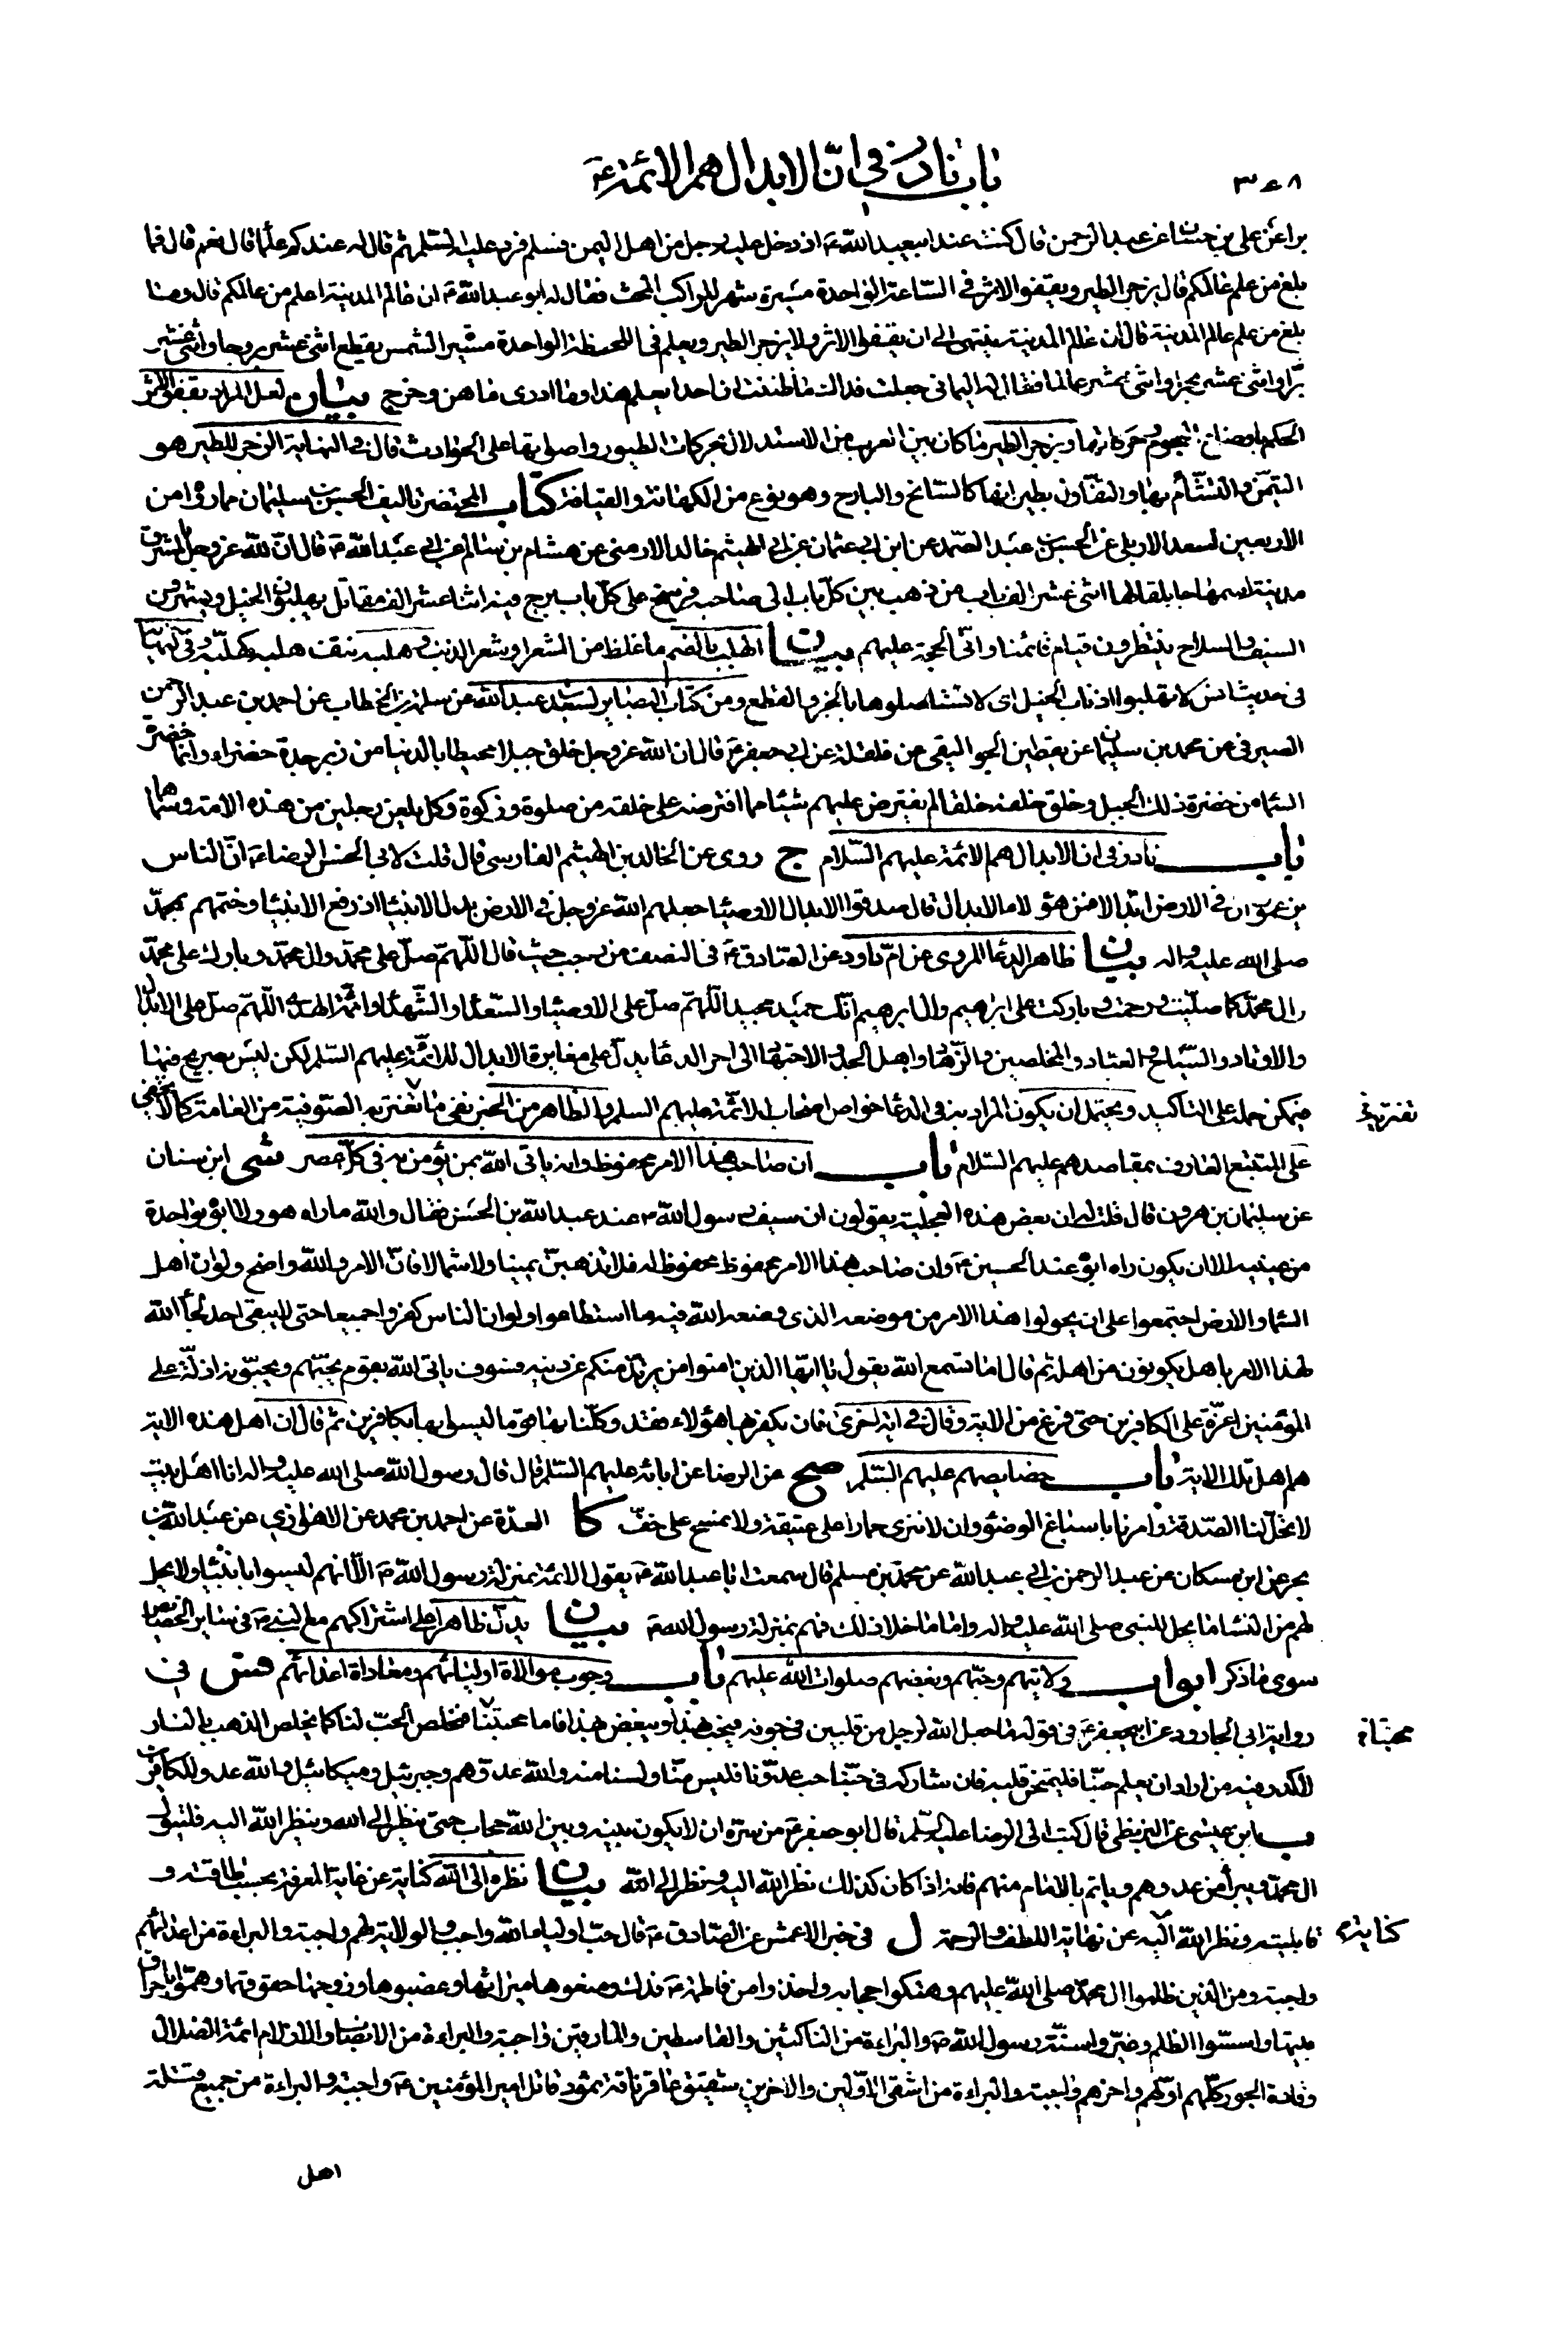 باب نادر فی ان الابدال هم الائمة ع
٣٤٨
بن اعین علی بن حسان عن عبد الرحمن قال کنت عند ابیعبد الله ع اذ دخل علیه رجل من اهل الیمن فسلم فرد علیه السلم ثم قال له عندکم علماء قال نعم قال فما
بلغ من علم عالمکم قال یزجر الطیر ویقفو الاثر فی الساعة الواحدة مسیرة شهر للراکب المحث فقال له ابو عبد الله ع ان عالم المدینة اعلم من عالمکم قال وما
بلغ من علم عالم المدینة قال ان عالم المدینة ینتهی الی ان یقفو الاثر ولا یزجر الطیر ویعلم فی اللحظة الواحدة مسیر الشمس یقطع اثنی عشر بروجا واثنی عشر
برا واثنی عشر بحرا واثنی عشر عالما فقال له الیمانی جعلت فداک ما ظننت ان احدا یعلم هذا وما ادری ما هن وخرج بیان لعل المراد بقفو الاثر
الحکم باوضاع النجوم وحرکاتها ویزجر الطیر ما کان بین العرب من الاستدلال بحرکات الطیور واصواتها علی الحوادث قال فی النهایة الزجر للطیر هو
التیمن والتشأم بها والتفأول بطیرانها کالسانح والبارح وهو نوع من الکهانة والقیافة کتاب المحتضر تالیف الحسن بن سلیمان مما رواه من
الاربعین لسعد الاربلی عن الحسن بن عبد الصمد عن ابن ابی عثمان عن ابی الهیثم خالد الارمنی عن هشام بن سالم عن ابی عبد الله ع قال ان لله عز وجل بالمشرق
مدینة اسمها جابلقا لها اثنی عشر الف باب من ذهب بین کل باب الی صاحبه فرسخ علی کل باب برج فیه اثنا عشر الف مقاتل یهلبون الخیل ویشهرون
السیف والسلاح ینتظرون قیام قائمنا وانی الحجة علیهم بیان الهلب بالضم ما غلظ من الشعر او شعر الذنب وهلبه نتف هلبه کهلبه وفی النهایة
فی حدیث انس لا تهلبوا اذناب الخیل ای لا تستاصلوها بالجز والقطع ومن کتاب البصایر لسعد بن عبد الله عن سلمة بن الخطاب عن احمد بن عبد الرحمن
الصیرفی عن محمد بن سلیمان عن یقطین الجوالیقی عن فلفلة عن ابی جعفر ع قال ان الله عز وجل خلق جبلا محیطا بالدنیا من زبرجدة خضراء وانما خضرة
السما من خضرة ذلک الجبل وخلق خلفه خلقا لم یفترض علیهم شیئا مما افترضه علی خلقه من صلوة وزکوة وکل یلعن رجلین من هذه الامة وسماهما
باب نادر فی ان الابدال هم الائمة علیهم السلام ج روی عن الخالد بن الهیثم الفارسی قال قلت لابی الحسن الرضا ع ان الناس
یزعمون ان فی الارض ابدالا فمن هؤلاء الابدال قال صدقوا الابدال الاوصیاء جعلهم الله عز وجل فی الارض بدل الانبیاء اذ رفع الانبیاء وختمهم بمحمد
صلی الله علیه واله بیان ظاهر الدعاء المروی عن ام داود عن الصادق ع فی النصف من رجب حیث قال اللهم صل علی محمد وال محمد وبارک علی محمد
وال محمد کما صلیت ورحمت وبارکت علی ابرهیم وال ابرهیم انک حمید مجید اللهم صل علی الاوصیاء والسعداء والشهداء وائمة الهدی اللهم صل علی الابدال
والاوتاد والسیاح والعباد والمخلصین والزهاد واهل الجد والاجتهاد الی اخر الدعا یدل علی مغایرة الابدال للائمة علیهم السلم لکن لیس بصریح فیها
فیمکن حمله علی التاکید ویحتمل ان یکون المراد به فی الدعا خواص اصحاب الائمة علیهم السلم والظاهر من الخبر نفی ما تفتریه الصوفیة من العامة کما لا یخفی
تفتریه خ
علی المتتبع العارف بمقاصدهم علیهم السلام باب ان صاحب هذا الامر محفوظ وانه یاتی الله بمن یؤمن به فی کل عصر شی ابن سنان
عن سلیمان بن هرون قال قلت له ان بعض هذه العجلیة یقولون ان سیف رسول الله ص عند عبد الله بن الحسن فقال والله ما راه هو ولا ابوه بواحدة
من عینیه الا ان یکون راه ابوه عند الحسین ع وان صاحب هذا الامر محفوظ محفوظ له فلا تذهبن یمینا ولا شمالا فان الامر والله واضح ولو ان اهل
السماء والارض اجتمعوا علی ان یحولوا هذا الامر من موضعه الذی وضعه الله فیه ما استطاعوا ولو ان الناس کفروا جمیعا حتی لا یبقی احد لجاء الله
لهذا الامر باهل یکونون من اهله ثم قال اما تسمع الله یقول یا ایها الذین امنوا من یرتد منکم عن دینه فسوف یاتی الله بقوم یحبهم ویحبونه اذلة علی
المؤمنین اعزة علی الکافرین حتی فرغ من الایة وقال فی ایة اخری فان یکفر بها هؤلاء فقد وکلنا بها قوما لیسوا بها بکافرین ثم قال ان اهل هذه الایة
هم اهل تلک الایة باب خصایصهم علیهم السلم صح عن الرضا عن ابائه علیهم السلم قال قال رسول الله صلی الله علیه واله انا اهل بیت
لا تحل لنا الصدقة وامرنا باسباغ الوضوء وان لا ننزی حمارا علی عتیقة ولا نمسح علی خف کا العدة عن احمد بن محمد عن الاهوازی عن عبد الله بن
بحر عن ابن مسکان عن عبد الرحمن بن ابی عبد الله عن محمد بن مسلم قال سمعت ابا عبد الله ع یقول الائمة بمنزلة رسول الله ص الا انهم لیسوا بانبیاء ولا یحل
لهم من النساء ما یحل للنبی صلی الله علیه واله واما ما خلا ذلک فهم بمنزلة رسول الله ص بیان یدل ظاهرا علی اشتراکهم مع النبی ص فی سایر الخصایص
سوی ما ذکر ابواب ولایتهم وحبهم وبغضهم صلوات الله علیهم باب وجوب موالاة اولیائهم ومعاداة اعدائهم فس فی
روایة ابی الجارود عن ابیجعفر ع فی قوله ما جعل الله لرجل من قلبین فی جوفه فیحب بهذا ویبغض بهذا فاما محبتنا فیخلص الحب لنا کما یخلص الذهب بالنار
محبنا خ
لا کدر فیه من اراد ان یعلم حبنا فلیمتحن قلبه فان شارکه فی حبنا حب عدونا فلیس منا ولسنا منه والله عدوهم وجبرئیل ومیکائیل والله عدو للکافرین
ب ابن عیسی عن البزنطی قال کتب الی الرضا علیه السلم قال ابو جعفر ع من سره ان لا یکون بینه وبین الله حجاب حتی ینظر الی الله وینظر الله الیه فلیتول
ال محمد ویبرأ من عدوهم ویاتم بالامام منهم فانه اذا کان کذلک نظر الله الیه ونظر الی الله بیان نظره الی الله کنایة عن غایة المعرفة بحسب طاقته و
قابلیته ونظر الله الیه عن نهایة اللطف والرحمة ل فی خبر الاعمش عن الصادق ع قال حب اولیاء الله واجب والولایة لهم واجبة والبراءة من اعدائهم
کنایة
واجبة ومن الذین ظلموا ال محمد صلی الله علیهم وهتکوا حجابه واخذوا من فاطمة ع فدک ومنعوها میراثها وغصبوها وزوجها حقوقهما وهموا باحراق
بیتها واسسوا الظلم وغیروا سنة رسول الله ص والبراءة من الناکثین والقاسطین والمارقین واجبة والبراءة من الانصاب والازلام ائمة الضلال
وقادة الجور کلهم اولهم واخرهم واجبة والبراءة من اشقی الاولین والاخرین شقیق عاقر ناقة ثمود قاتل امیر المؤمنین ع واجبة والبراءة من جمیع قتلة
اهل